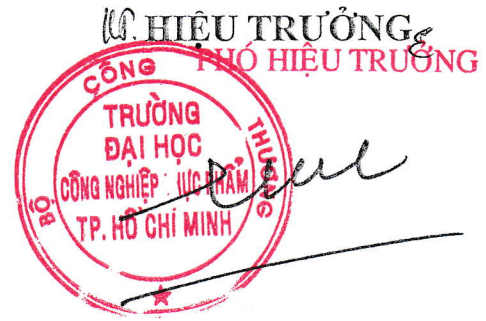 KT. HIỆU TRƯỞNG
PHÓ HIỆU TRƯỞNG
BỘ CÔNG THƯƠNG
TRƯỜNG
ĐẠI HỌC
CÔNG NGHIỆP THỰC PHẨM
TP. HỒ CHÍ MINH